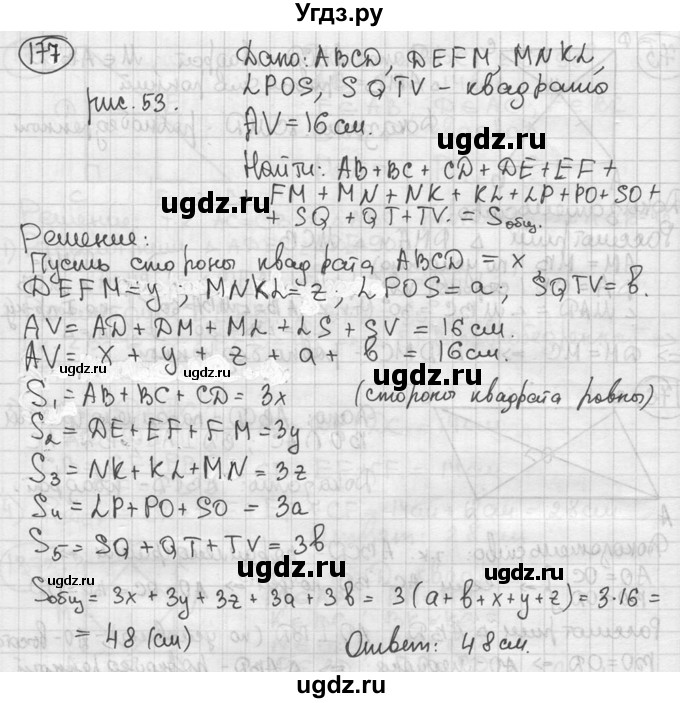 Угдз.ру
177
Дано: ABCD, DEFM, MNKL,
рис. 53.
LPOS, SQTV - квадраты
AV = 16 см.
ugdz.ru
Найти: AB + BC + CD + DE + EF +
+ FM + MN + NK + KL + LP + PO + SO +
+ SQ + QT + TV. = Sобщ.
ugdz.ru ugdz.ru
Решение:
Пусть стороны квадрата ABCD = x,
DEFM = y; MNKL = z; LPOS = a; SQTV = b.
ugdz.ru
AV = AD + DM + ML + LS + SV = 16 см.
AV = x + y + z + a + b = 16 см.
ugdz.ru ugdz.ru
S1 = AB + BC + CD = 3x (стороны квадрата равны)
S2 = DE + EF + FM = 3y
ugdz.ru
S3 = NK + KL + MN = 3z
S4 = LP + PO + SO = 3a
S5 = SQ + QT + TV = 3b
ugdz.ru ugdz.ru ugdz.ru
Sобщ = 3x + 3y + 3z + 3a + 3b = 3(a + b + x + y + z) = 3·16 =
= 48 (см) Ответ: 48 см.
ugdz.ru
ugdz.ru